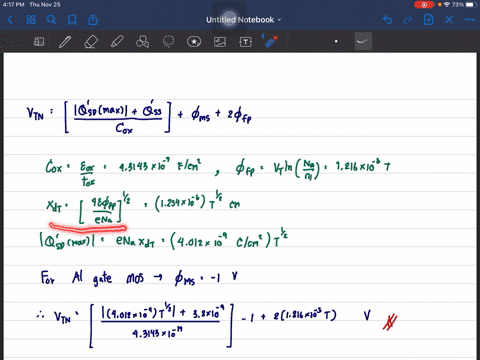 4:17 PM Thu Nov 25
73%
Untitled Notebook
V_TN = [ (|Q'_SD(max)| + Q'_SS) / C_ox ] + ϕ_ms + 2ϕ_fp
C_ox = ε_ox / t_ox = 4.3143×10^-9 F/cm² , ϕ_fp = V_T ln(Na/ni) = 1.216×10^-3 T
X_dT = [ 4εϕ_fp / eNa ]^1/2 = (1.254×10^-6) T^1/2 cm
|Q'_SD(max)| = eNa X_dT = (4.012×10^-9 C/cm²) T^1/2
For Al gate MOS → ϕ_ms = -1 V
∴ V_TN = [ (|(4.012×10^-9) T^1/2| + 3.2×10^-9) / 4.3143×10^-19 ] - 1 + 2(1.216×10^-3 T) V